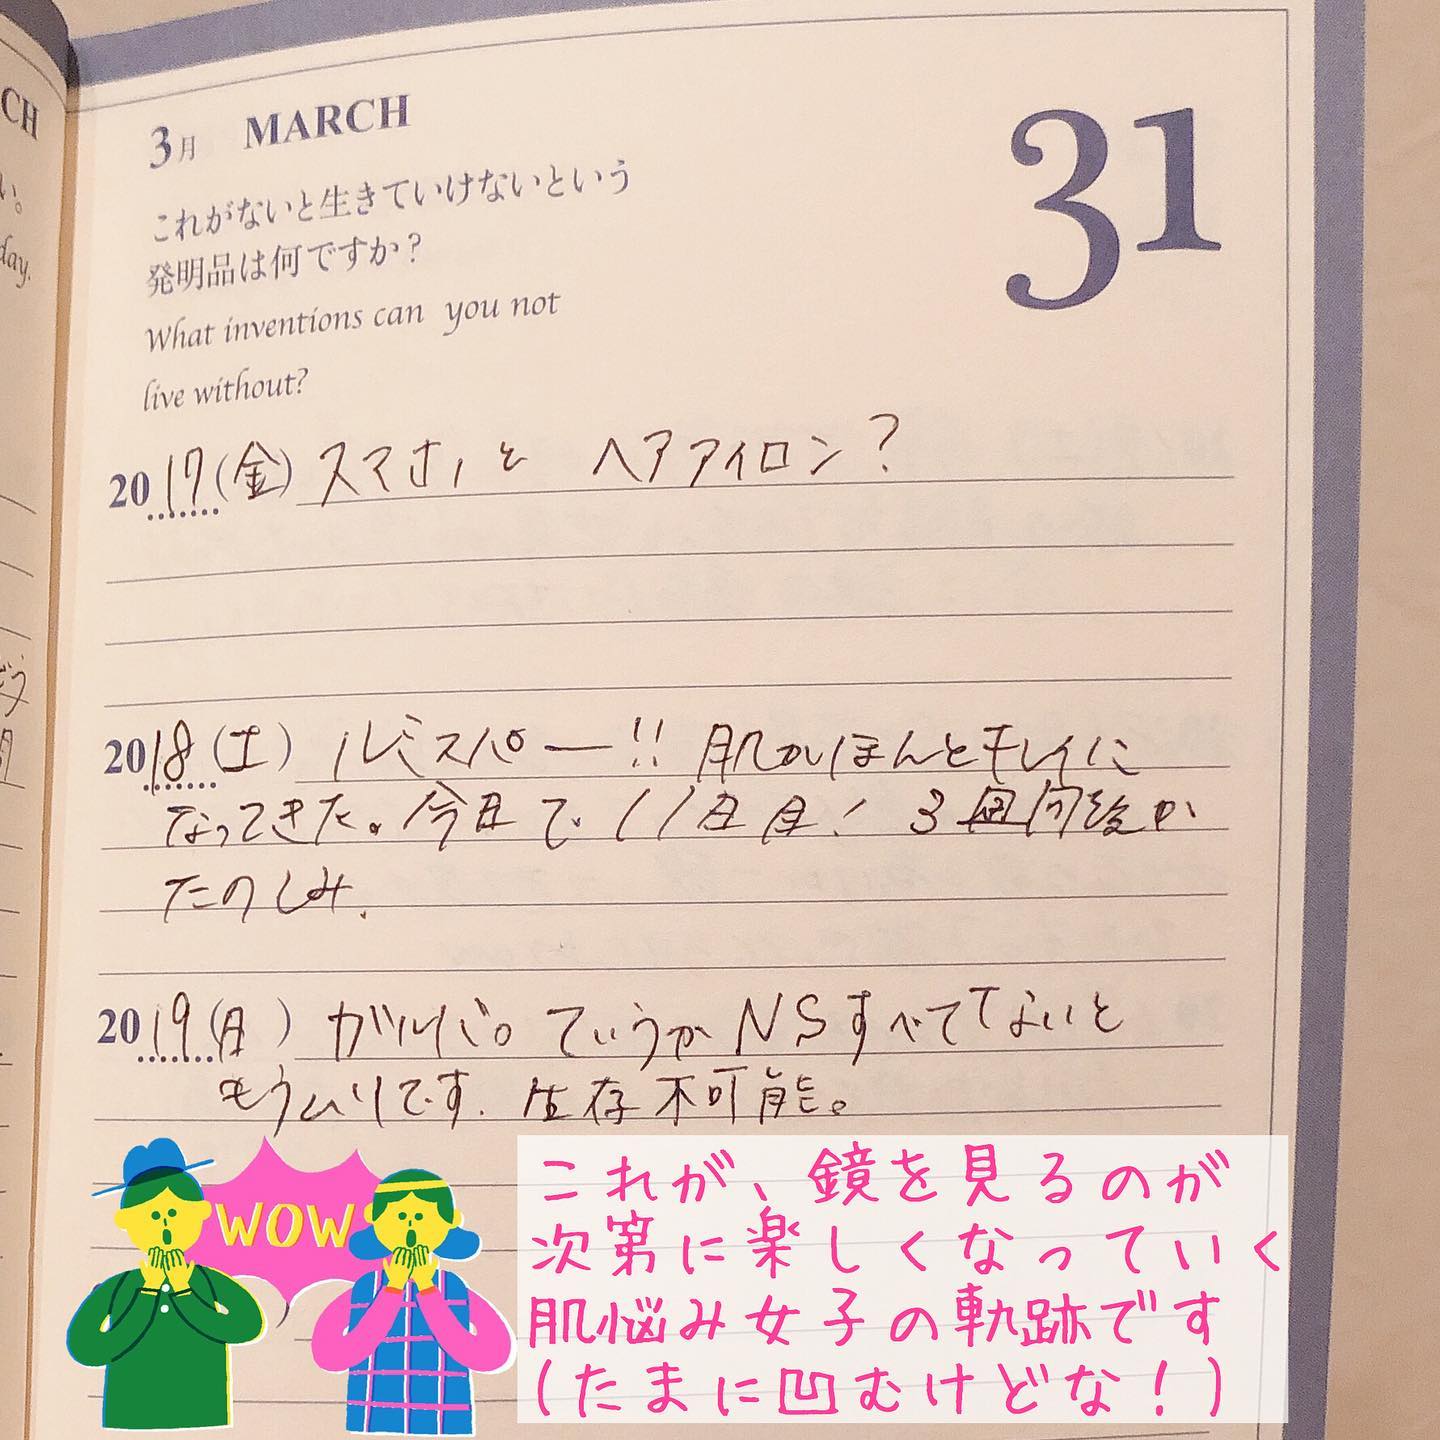 CH
い。
day.
3月 MARCH
31
これがないと生きていけないという
発明品は何ですか？
What inventions can you not
live without?
2017(金) スマホ、と ヘアアイロン?
2018(土) ルミスパー!! 肌がほんとキレイに
なってきた。今日で11日目! 3週間後が
たのしみ.
2019(月) ガルバ。ていうかNSすべててないと
もうムリです. 生存不可能。
WOW
これが、鏡を見るのが
次第に楽しくなっていく
肌悩み女子の軌跡です
(たまに凹むけどな!)